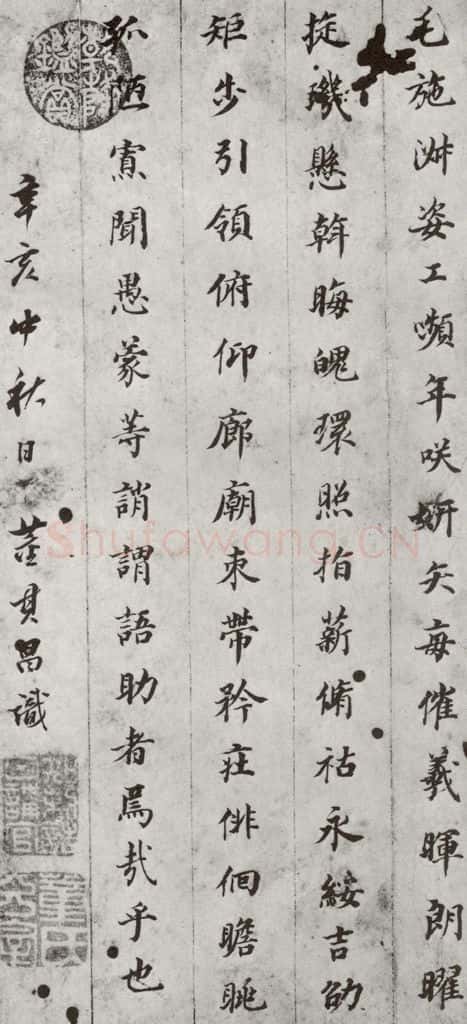 毛施淑姿工嚬年咲妍矢每催羲暉朗曜
旋璣懸斡晦魄環照指薪脩祜永綏吉劭
矩步引領俯仰廊廟束帶矜莊俳佪瞻眺
孤陋寡聞愚蒙等誚謂語助者焉哉乎也
辛亥中秋日董其昌識
Shufawang.CN